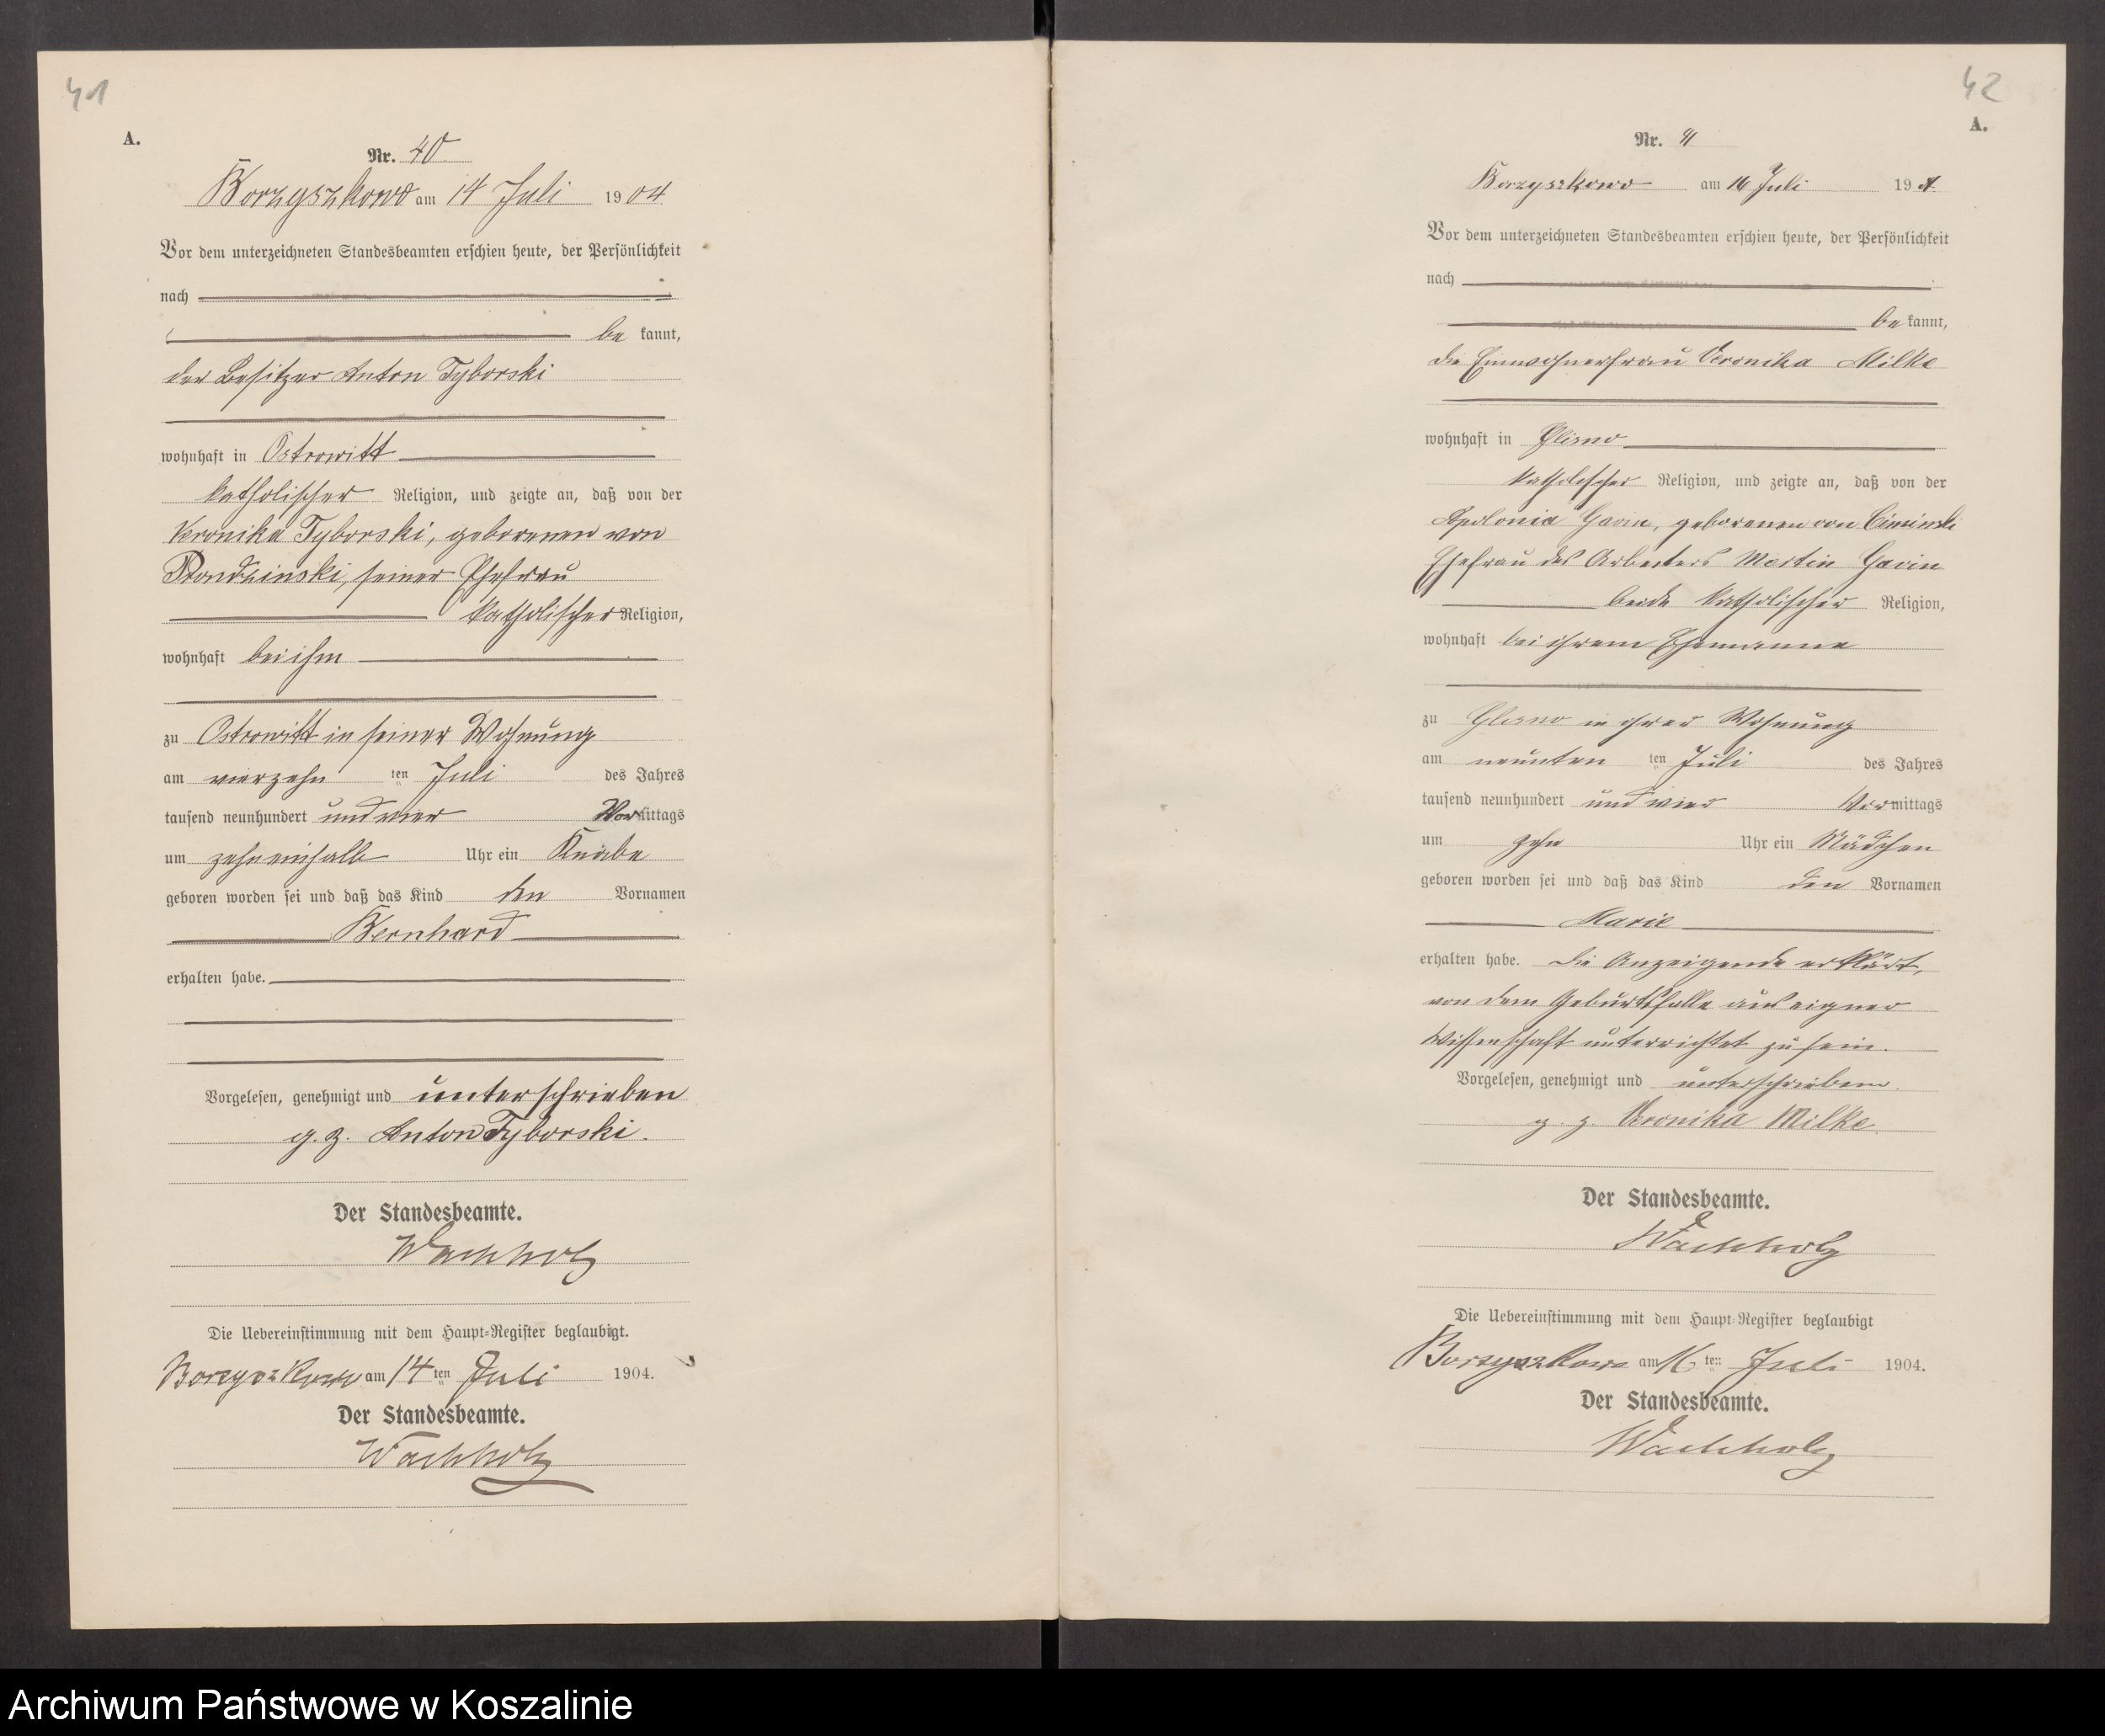 41
A.
Nr. 40
Borzyszkowo am 14 Juli 1904
Vor dem unterzeichneten Standesbeamten erschien heute, der Persönlichkeit
nach
be kannt,
der Besitzer Anton Tyborski
wohnhaft in Ostrowitt
katholischer Religion, und zeigte an, daß von der
Veronika Tyborski, geborenen von
Prondzinski, seiner Ehefrau
katholischer Religion,
wohnhaft bei ihm
zu Ostrowitt in seiner Wohnung
am vierzehn ten Juli des Jahres
tausend neunhundert und vier Vormittags
um zehneinhalb Uhr ein Knabe
geboren worden sei und daß das Kind den Vornamen
Bernhard
erhalten habe.
Vorgelesen, genehmigt und unterschrieben
g. z. Anton Tyborski.
Der Standesbeamte.
Wachholz
Die Uebereinstimmung mit dem Haupt-Register beglaubigt.
Borzyszkowo am 14 ten Juli 1904.
Der Standesbeamte.
Wachholz
42
A.
Nr. 41
Borzyszkowo am 16 Juli 1904.
Vor dem unterzeichneten Standesbeamten erschien heute, der Persönlichkeit
nach
be kannt,
die Einwohnerfrau Veronika Milke
wohnhaft in Glisno
katholischer Religion, und zeigte an, daß von der
Apolonia Gavin, geborenen von Ciminski
Ehefrau des Arbeiters Martin Gavin
beide katholischer Religion,
wohnhaft bei ihrem Ehemanne
zu Glisno in ihrer Wohnung
am neunten ten Juli des Jahres
tausend neunhundert und vier Vormittags
um zehn Uhr ein Mädchen
geboren worden sei und daß das Kind den Vornamen
Marie
erhalten habe. Die Anzeigende erklärt,
von dem Geburtsfalle aus eigner
Wissenschaft unterrichtet zu sein.
Vorgelesen, genehmigt und unterschrieben.
g. z. Veronika Milke
Der Standesbeamte.
Wachholz
Die Uebereinstimmung mit dem Haupt-Register beglaubigt
Borzyszkowo am 16 ten Juli 1904.
Der Standesbeamte.
Wachholz
Archiwum Państwowe w Koszalinie